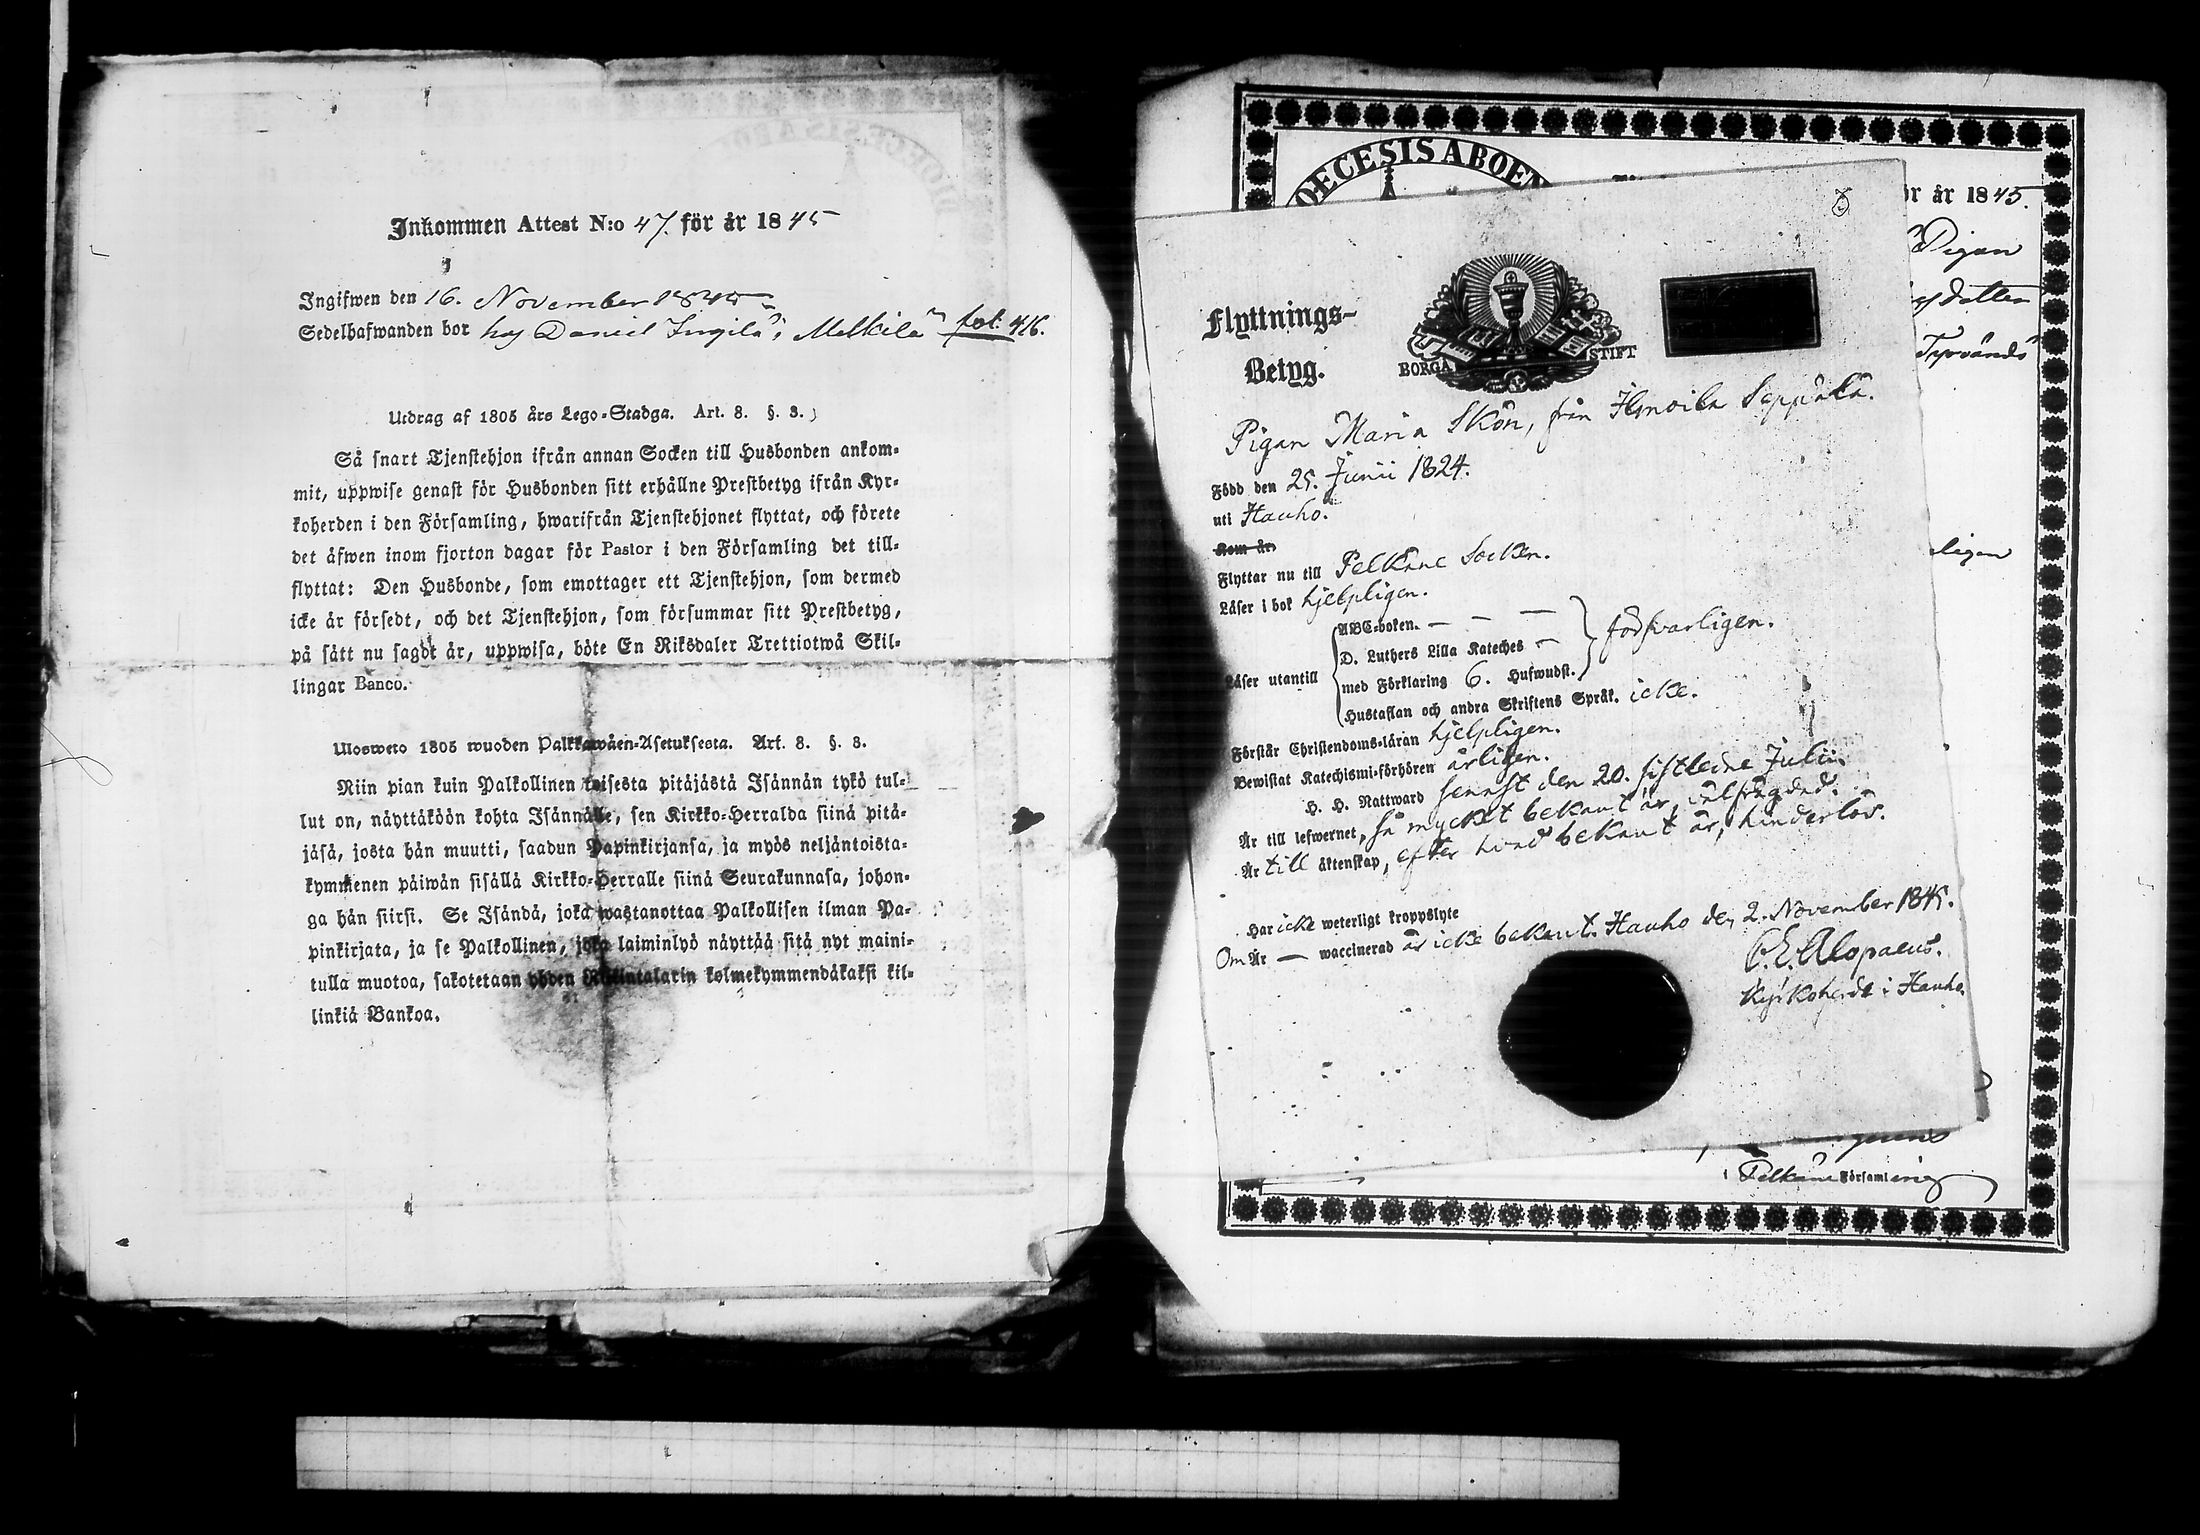 Inkommen Attest N:o 47. för år 1845
Ingifwen den 16. November 1845
Sedelhafwanden bor hos Daniel Ingilä, Melkilä fol. 416.
Utdrag af 1805 års Lego-Stadga. Art. 8. §. 3.
Så snart Tjenstehjon ifrån annan Socken till Husbonden ankom-
mit, uppwise genast för Husbonden sitt erhållne Prestbetyg ifrån Kyr-
koherden i den Församling, hwarifrån Tjenstehjonet flyttat, och förete
det äfwen inom fjorton dagar för Pastor i den Församling det till-
flyttat: Den Husbonde, som emottager ett Tjenstehjon, som dermed
icke är försedt, och det Tjenstehjon, som försummar sitt Prestbetyg,
på sätt nu sagdt är, uppwisa, böte En Riksdaler Trettiotwå Skil-
lingar Banco.
Ulosweto 1805 wuoden Palkkawäen-Asetuksesta. Art. 8. §. 3.
Niin pian kuin Palkollinen toisesta pitäjästä Isännän tykö tul-
lut on, näyttäköön kohta Isännälle, sen Kirkko-Herralda siinä pitä-
jäsä, josta hän muutti, saadun Papinkirjansa, ja myös neljäntoista-
kymmenen päiwän sisällä Kirkko-Herralle siinä Seurakunnasa, johon-
ga hän siirsi. Se Isändä, joka wastanottaa Palkollisen ilman Pa-
pinkirjata, ja se Palkollinen, joka laiminlyö näyttää sitä nyt maini-
tulla muotoa, sakotetaan yhden Riksintalarin kolmekymmendäkaksi kil-
linkiä Bankoa.
OECESIS ABOEN
ör år 1845.
Pigan
dotter
Tyrvändö
ligen
Flyttnings-
Betyg.
BORGÅ STIFT
Pigan Maria Skön, från Ilmoila Seppälä.
Född den 25. Junii 1824.
uti Hauho.
Kom år
Flyttar nu till Pelkäne Socken.
Läser i bok hjelpligen.
Läser utantill
ABC-boken. — — —
D. Luthers Lilla Kateches —
med Förklaring 6. Hufwudst.
försvarligen.
Hustaflan och andra Skriftens Språk. icke.
Förstår Christendoms-läran hjelpligen.
Bewistat Katechismi-förhören årligen.
H. H. Nattward senast den 20. sistledne Julii.
Är till lefwernet, så mycket bekant är, välfrägdad.
Är till äktenskap, efter hvad bekant är, hinderlös.
Har icke weterligt kroppslyte
Om Är — waccinerad är icke bekant. Hauho den 2. November 1845.
C. E. Alopaeus.
Kyrkoherde i Hauho.
i Pelkäne Församling